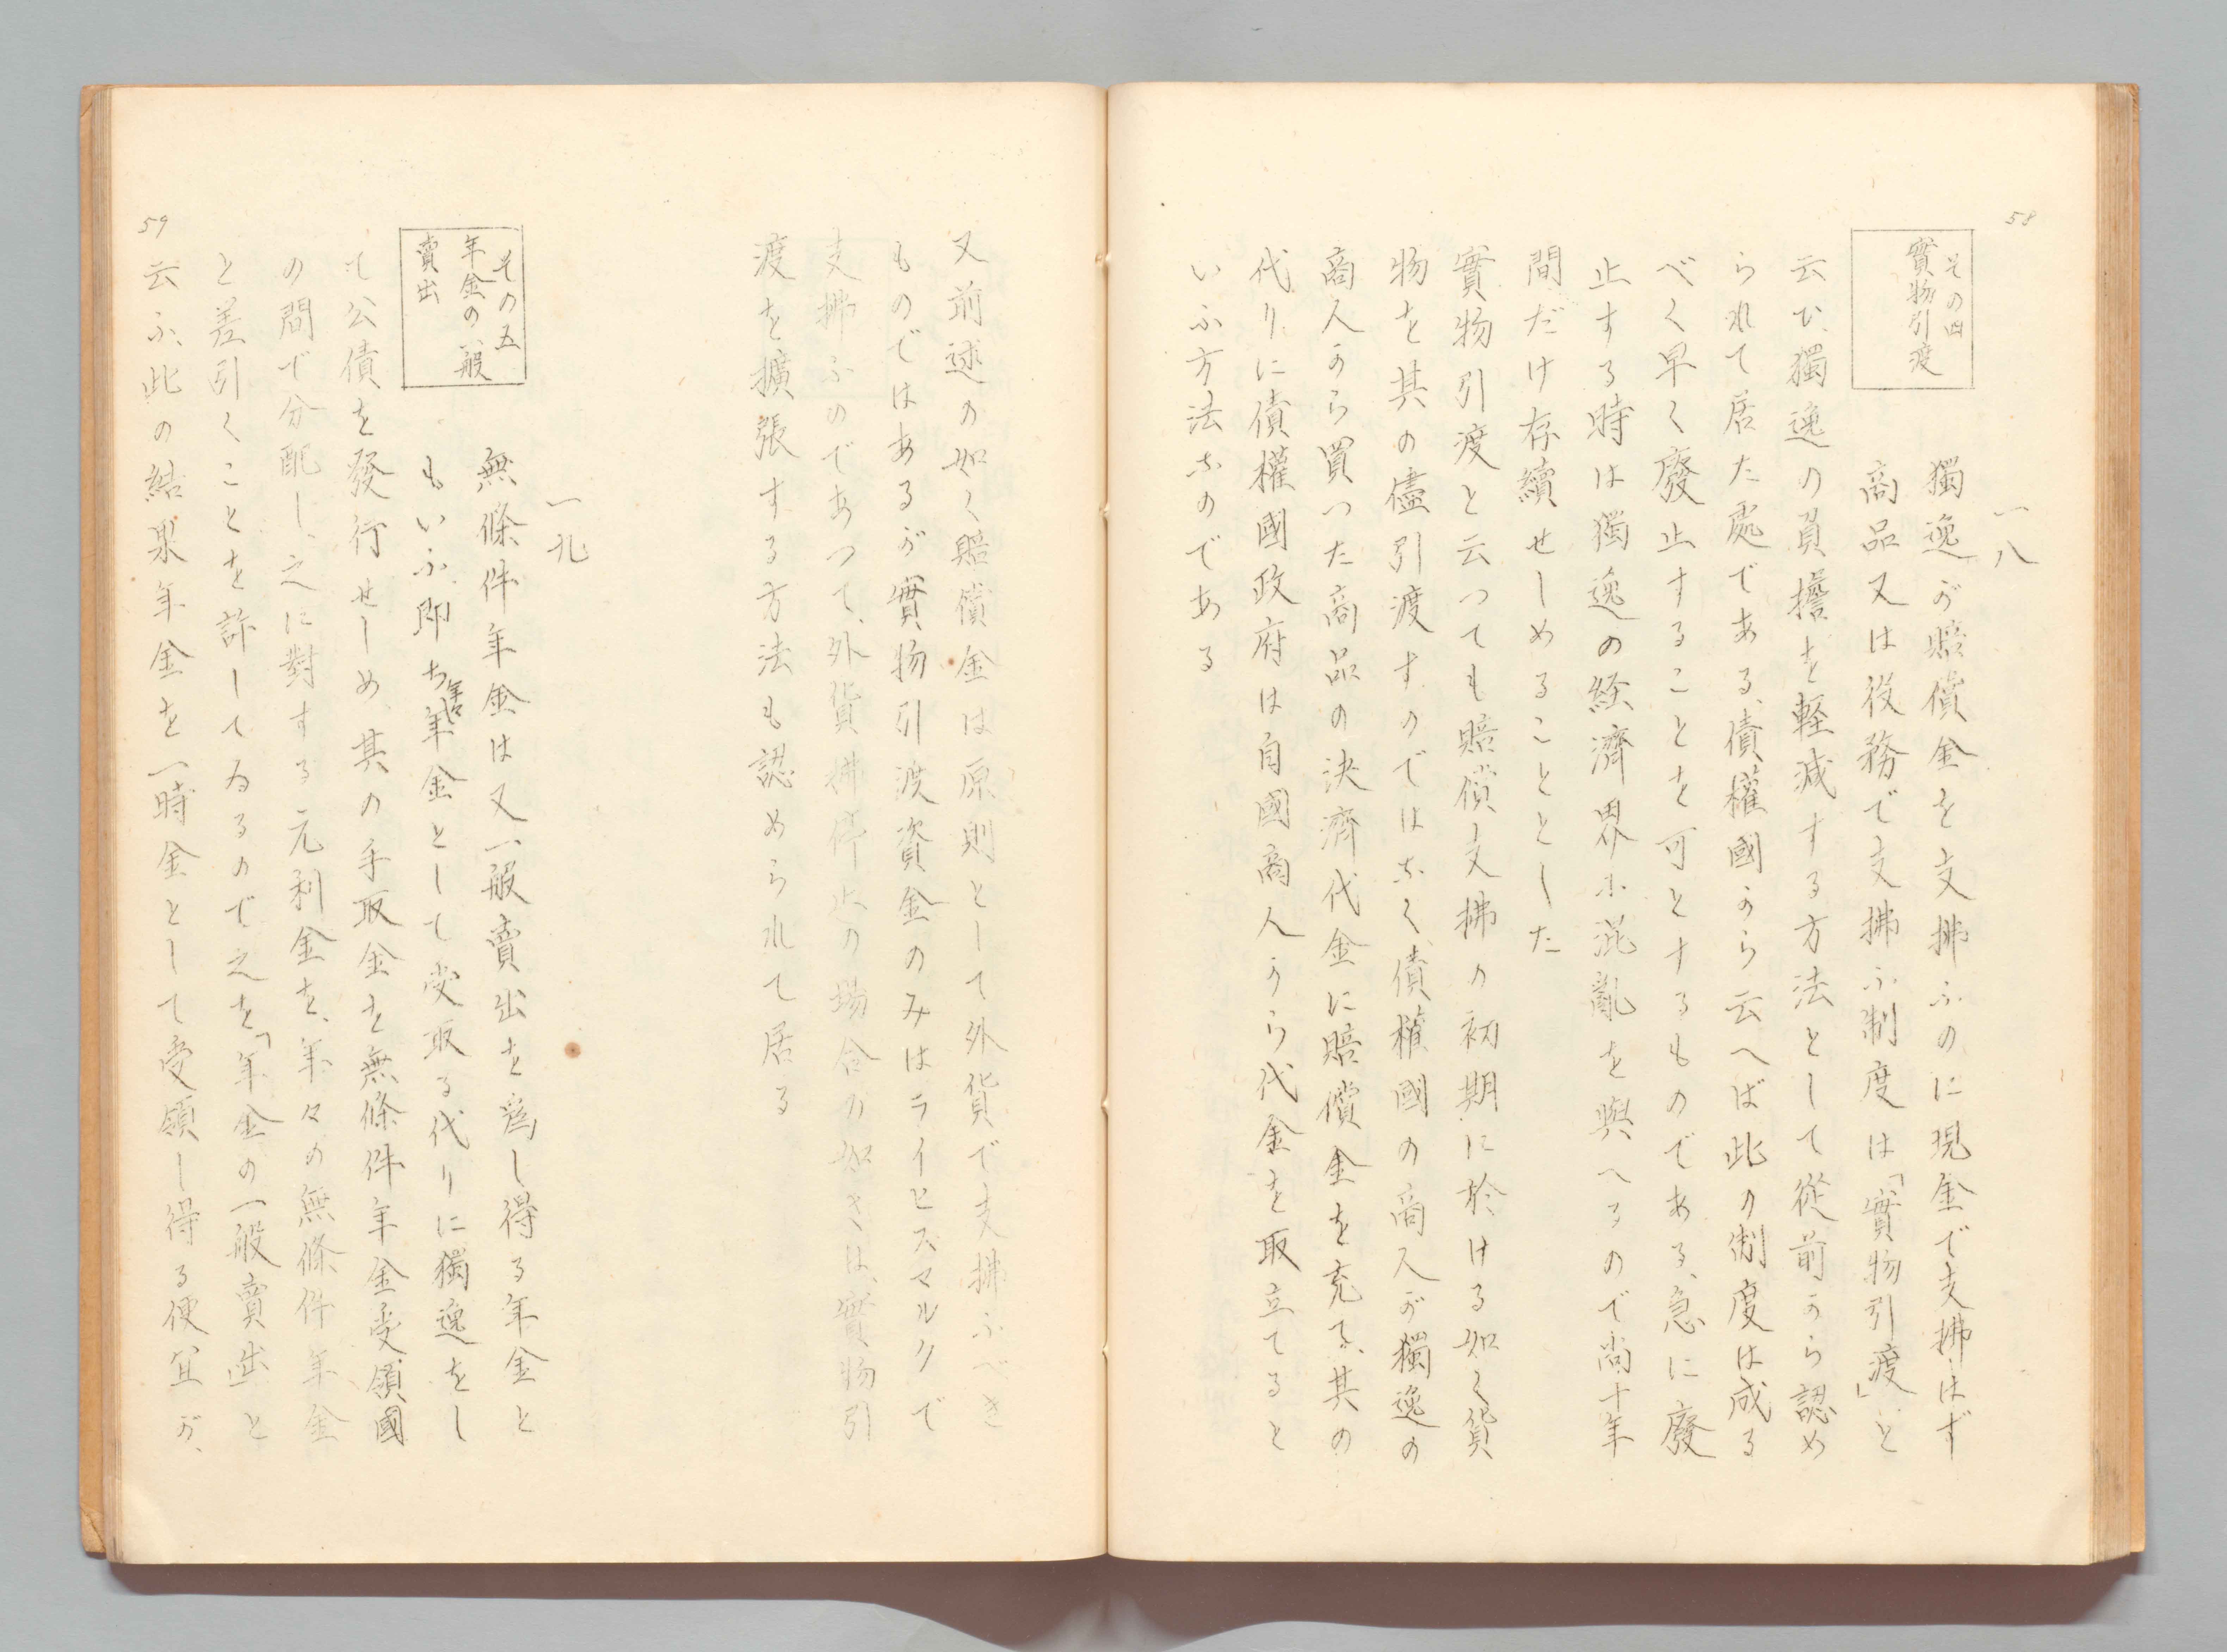 58
一八
その四
實物引渡
獨逸が賠償金を支拂ふのに現金で支拂はず
商品又は役務で支拂ふ制度は「實物引渡」と
云ひ、獨逸の負擔を軽減する方法として從前から認め
られて居た處である、債權國から云へば此の制度は成る
べく早く廢止することを可とするものである、急に廢
止する時は獨逸の経濟界に混亂を與へるので尚十年
間だけ存續せしめることとした
實物引渡と云つても賠償支拂の初期に於ける如く貨
物を其の儘引渡すのではなく、債權國の商人が獨逸の
商人から買つた商品の決濟代金に賠償金を充る、其の
代りに債權國政府は自國商人から代金を取立てると
いふ方法なのである
又前述の如く賠償金は原則として外貨で支拂ふべき
ものではあるが實物引渡資金のみはライヒスマルクで
支拂ふのであつて、外貨拂停止の場合の如きは、實物引
渡を擴張する方法も認められて居る
一九
その五
年金の一般
賣出
無條件年金は又一般賣出を爲し得る年金と
もいふ、即ち年々年金として受取る代りに獨逸をし
て公債を發行せしめ、其の手取金を無條件年金受領國
の間で分配し、之に對する元利金を、年々の無條件年金
と差引くことを許してゐるので之を「年金の一般賣出」と
云ふ、此の結果年金を一時金として受領し得る便宜が、
59